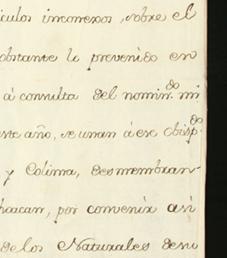 iculos inconexos, sobre el
obstante lo prevenido en
á consulta del nomin.do mi
este año, se unan á ese obisp.do
y Colima, desmembran-
hoacan, por convenir asi
de los Naturales de su